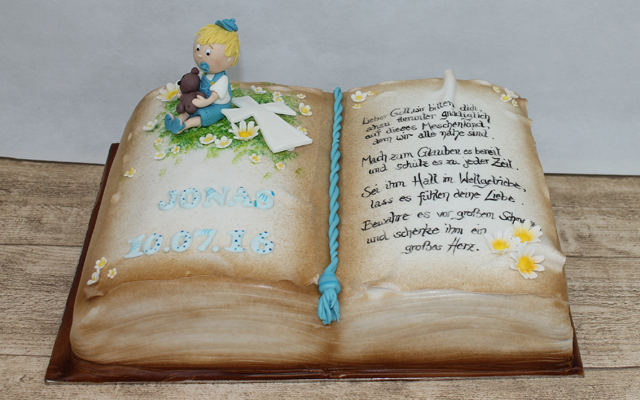 JONAS
10.07.16
Lieber Gott, wir bitten dich,
schau herunter gnädiglich
auf dieses Menschenkind,
dem wir alle nahe sind.
Mach zum Glauben es bereit
und schütz es zu jeder Zeit.
Sei ihm Halt im Weltgetriebe,
lass es fühlen deine Liebe.
Bewahre es vor großem Schmerz
und schenke ihm ein
großes Herz.